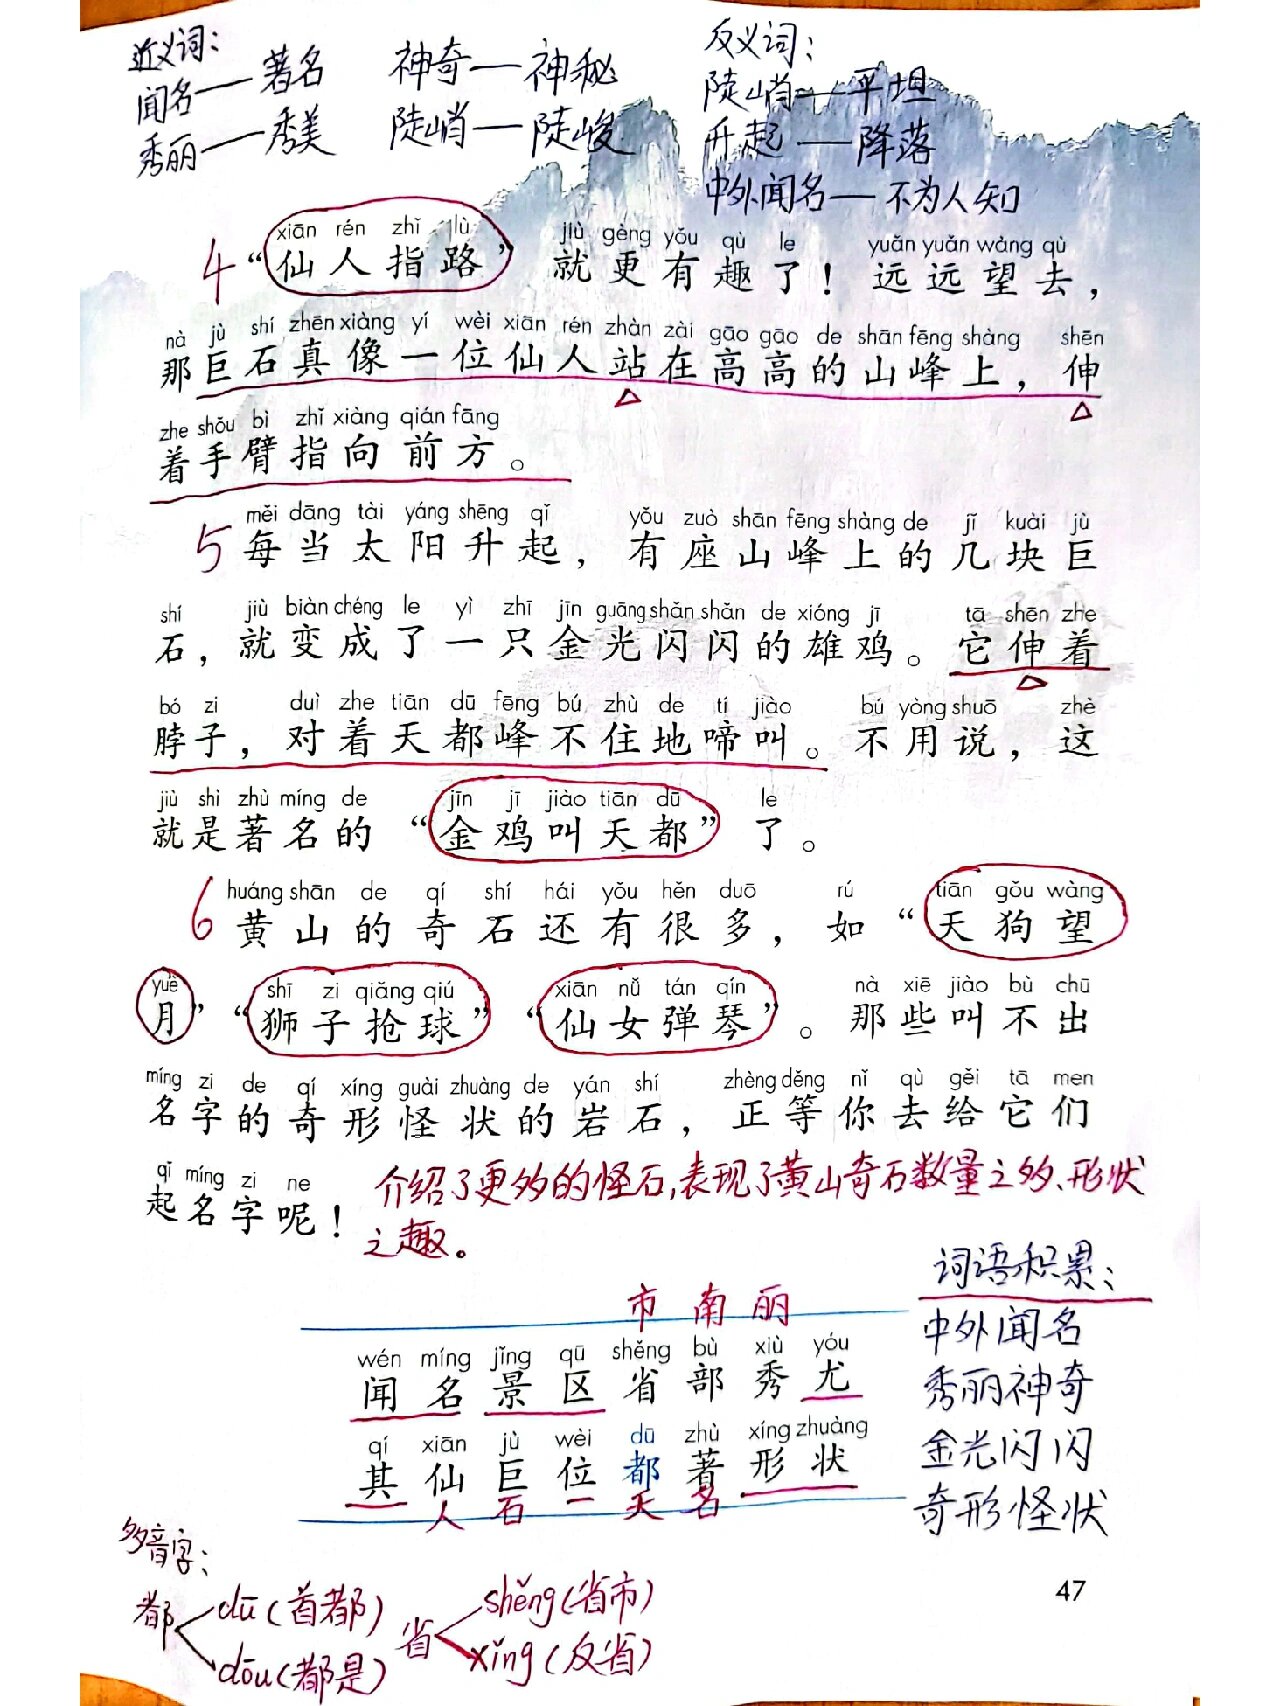 近义词：
闻名—著名 神奇—神秘
秀丽—秀美 陡峭—陡峻
反义词：
陡峭—平坦
升起—降落
中外闻名—不为人知
xiān rén zhǐ lù jiù gèng yǒu qù le yuǎn yuǎn wàng qù
4“仙人指路”就更有趣了！远远望去，
nà jù shí zhēn xiàng yí wèi xiān rén zhàn zài gāo gāo de shān fēng shàng shēn
那巨石真像一位仙人站在高高的山峰上，伸
zhe shǒu bì zhǐ xiàng qián fāng
着手臂指向前方。
měi dāng tài yáng shēng qǐ yǒu zuò shān fēng shàng de jǐ kuài jù
5每当太阳升起，有座山峰上的几块巨
shí jiù biàn chéng le yì zhī jīn guāng shǎn shǎn de xióng jī tā shēn zhe
石，就变成了一只金光闪闪的雄鸡。它伸着
bó zi duì zhe tiān dū fēng bú zhù de tí jiào bú yòng shuō zhè
脖子，对着天都峰不住地啼叫。不用说，这
jiù shì zhù míng de jīn jī jiào tiān dū le
就是著名的“金鸡叫天都”了。
huáng shān de qí shí hái yǒu hěn duō rú tiān gǒu wàng
6黄山的奇石还有很多，如“天狗望
yuè shī zi qiǎng qiú xiān nǚ tán qín nà xiē jiào bù chū
月”“狮子抢球”“仙女弹琴”。那些叫不出
míng zi de qí xíng guài zhuàng de yán shí zhèng děng nǐ qù gěi tā men
名字的奇形怪状的岩石，正等你去给它们
qǐ míng zi ne
起名字呢！
介绍了更多的怪石，表现了黄山奇石数量之多、形状
之趣。
市 南 丽
wén míng jǐng qū shěng bù xiù yóu
闻 名 景 区 省 部 秀 尤
qí xiān jù wèi dū zhù xíng zhuàng
其 仙 巨 位 都 著 形 状
人 石 一 天 名
词语积累：
中外闻名
秀丽神奇
金光闪闪
奇形怪状
多音字：
都 dū（首都） 省 shěng（省市）
dōu（都是） xǐng（反省）
47